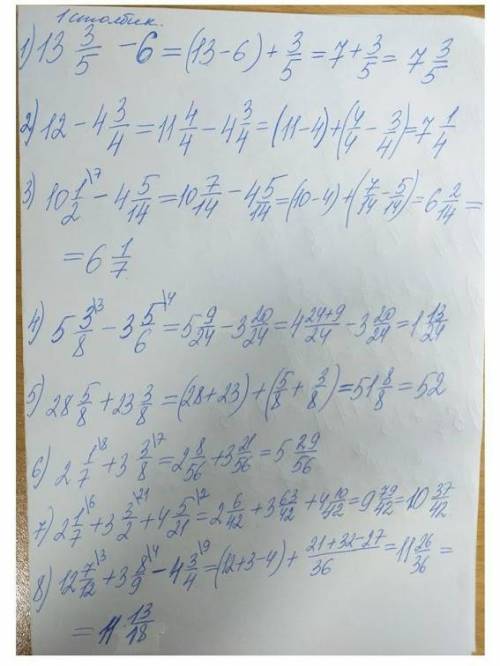 1 столбик.
1) 13 3/5 − 6 = (13 − 6) + 3/5 = 7 + 3/5 = 7 3/5
2) 12 − 4 3/4 = 11 4/4 − 4 3/4 = (11 − 4) + (4/4 − 3/4) = 7 1/4
3) 10 1/2 \7 − 4 5/14 = 10 7/14 − 4 5/14 = (10 − 4) + (7/14 − 5/14) = 6 2/14 =
= 6 1/7
4) 5 3/8 \3 − 3 5/6 \4 = 5 9/24 − 3 20/24 = 4 24+9/24 − 3 20/24 = 1 13/24
5) 28 5/8 + 23 3/8 = (28 + 23) + (5/8 + 3/8) = 51 8/8 = 52
6) 2 1/7 \8 + 3 3/8 \7 = 2 8/56 + 3 21/56 = 5 29/56
7) 2 1/7 \6 + 3 3/2 \21 + 4 5/21 \2 = 2 6/42 + 3 63/42 + 4 10/42 = 9 79/42 = 10 37/42
8) 12 7/12 \3 + 3 8/9 \4 − 4 3/4 \9 = (12 + 3 − 4) + 21+32−27/36 = 11 26/36 =
= 11 13/18